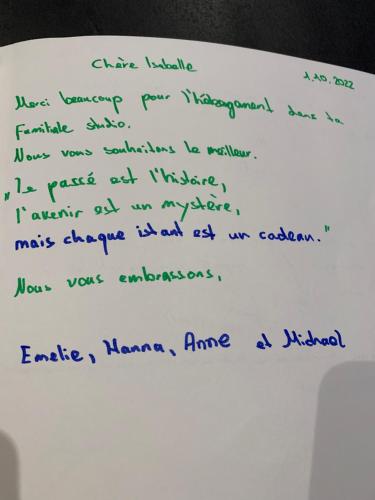 Chère Isabelle
1.10.2022
Merci beaucoup pour l'hébergament dans ta
Familiale studio.
Nous vous souhaitons le meilleur.
„Le passé est l'histoire,
l'avenir est un mystère,
mais chaque istant est un cadeau."
Nous vous embrassons,
Emelie, Hanna, Anne et Michael